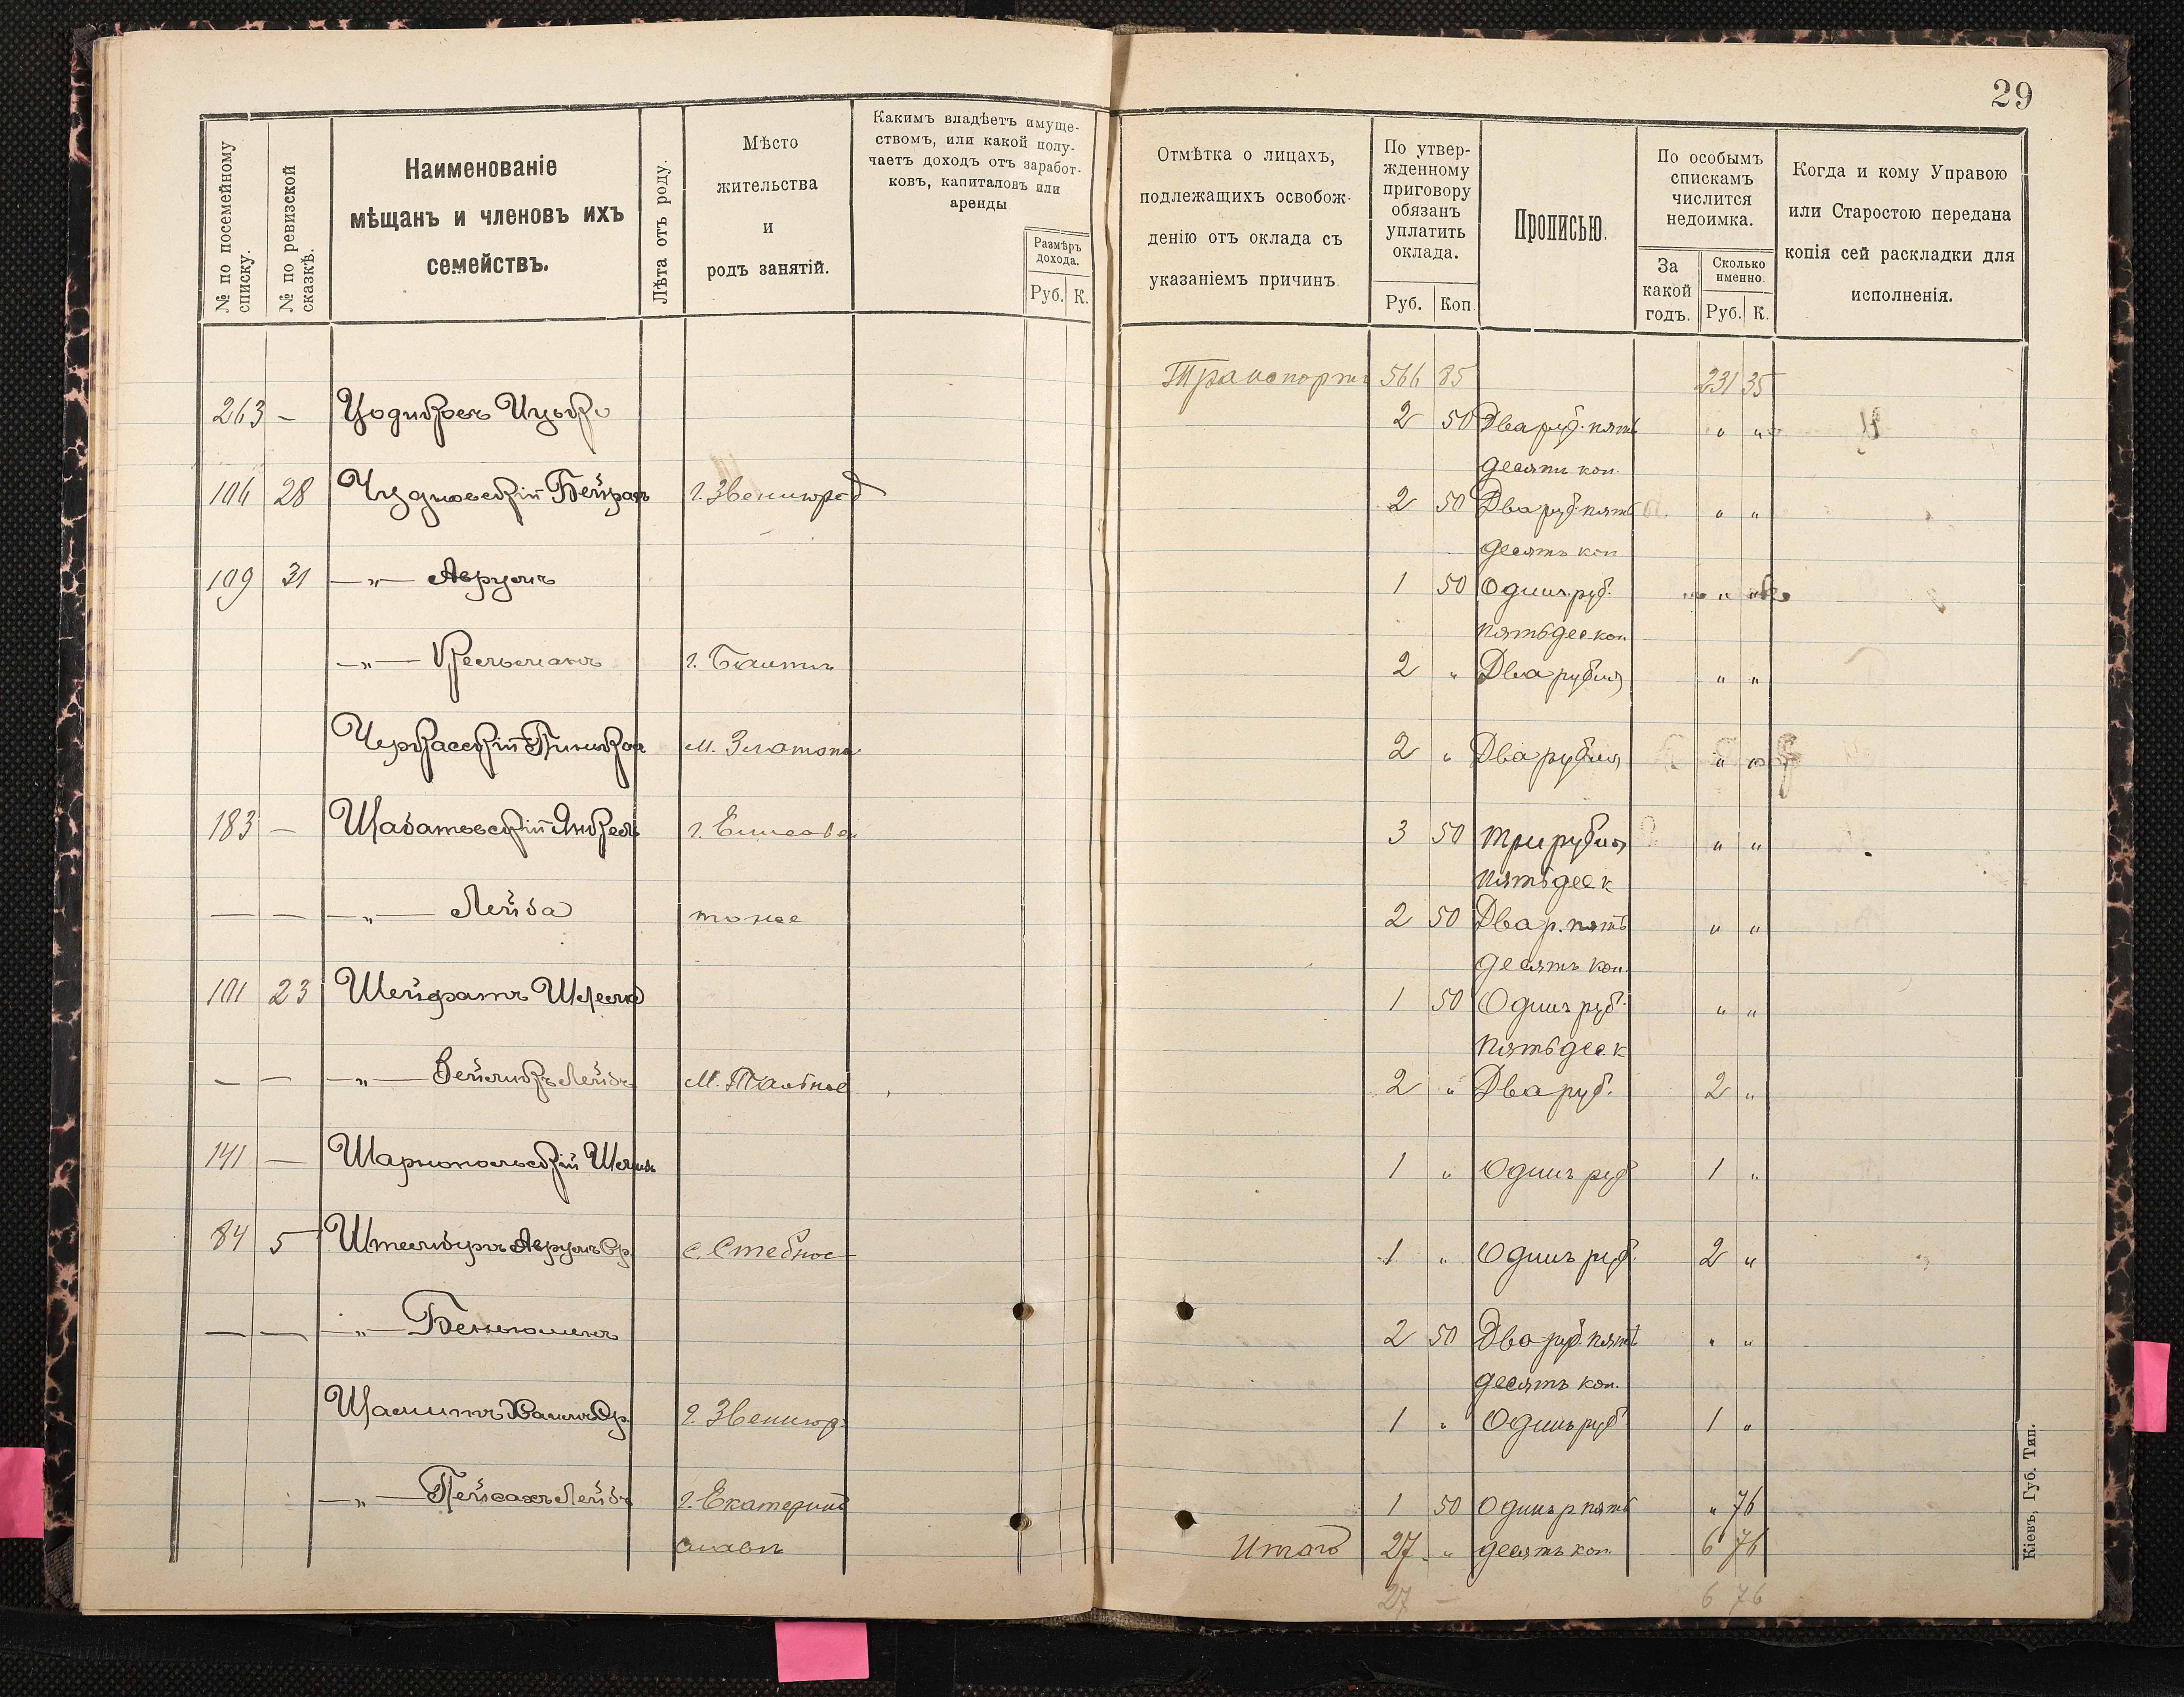 29
№ по посемейному списку.
№ по ревизской сказкѣ.
Наименованіе
мѣщанъ и членовъ ихъ
семействъ.
Лѣта отъ роду.
Мѣсто
жительства
и
родъ занятій.
Какимъ владѣетъ имуще-
ствомъ, или какой полу-
чаетъ доходъ отъ заработ-
ковъ, капиталовъ или
аренды
Размѣръ
дохода.
Руб. К.
Отмѣтка о лицахъ,
подлежащихъ освобож-
денію отъ оклада съ
указаніемъ причинъ.
По утвер-
жденному
приговору
обязанъ
уплатить
оклада.
Руб. Коп.
Прописью.
По особымъ
спискамъ
числится
недоимка.
За
какой
годъ.
Сколько
именно.
Руб. К.
Когда и кому Управою
или Старостою передана
копія сей раскладки для
исполненія.
Транспортъ 566 85 231 35
263 — Цодиковъ Ицько 2 50 Два руб. пять „ „
десятъ коп.
106 28 Чудновскій г. Звенигород 2 50 Два руб. пять „ „
десятъ коп
109 31 —„— Аврумъ 1 50 Одинъ руб. „ „
пятьдес коп.
—„— Кельманъ г. 2 „ Два рубля „ „
Черкасскій Пинькас м. Златопол 2 „ Два рубля „ „
183 — Шабатовскій Янкель г. Елисавет 3 50 Три рубля „ „
пятьдес к
— — —„— Лейба тоже 2 50 Два р. пять „ „
десятъ коп.
101 23 1 50 Одинъ руб. „ „
пятьдес. к
— — —„— Лейбъ м. Тальное 2 „ Два руб. 2 „
141 — Шарнопольскій 1 „ Одинъ руб 1 „
84 5 Штейнбургъ Аврумъ Ср. с. Стебное 1 „ Одинъ руб. 2 „
— — —„— Беньюминъ 2 50 Два руб. пять „ „
десятъ коп.
Хаимъ Ср. г. Звенигор. 1 „ Одинъ руб 1 „
—„— Пейсахъ Лейбъ г. Екатерино 1 50 Одинъ р пять „ 76
славъ Итого 27 „ десятъ коп. 6 76
27 — 6 76
Кіевъ, Губ. Тип.